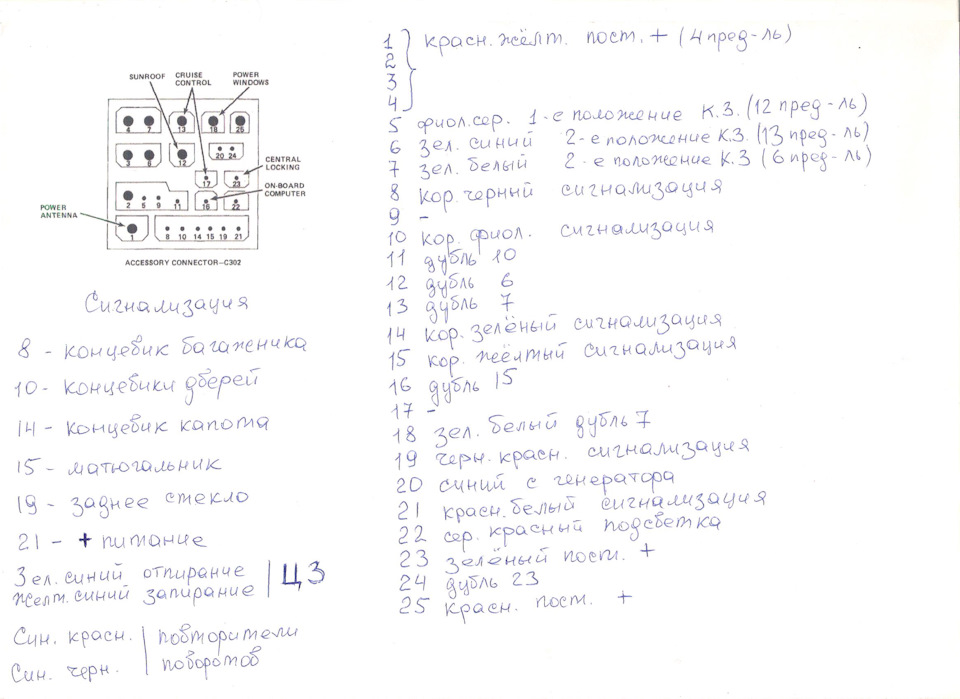 SUNROOF
CRUISE
CONTROL
POWER
WINDOWS
4 7 13 18 25
3 6 12 20 24
CENTRAL
LOCKING
17 23
ON-BOARD
COMPUTER
2 5 9 11 16 22
POWER
ANTENNA
1 8 10 14 15 19 21
ACCESSORY CONNECTOR–C302
Сигнализация
8 - концевик багажника
10 - концевики дверей
14 - концевик капота
15 - матюгальник
19 - заднее стекло
21 - + питание
Зел. синий отпирание
Желт. синий запирание
ЦЗ
Син. красн. повторители
Син. черн. поворотов
1 красн. жёлт. пост. + (4 пред-ль)
2
3
4
5 фиол. сер. 1-е положение К.З. (12 пред-ль)
6 зел. синий 2-е положение К.З. (13 пред-ль)
7 зел. белый 2-е положение К.З (6 пред-ль)
8 кор. черный сигнализация
9 -
10 кор. фиол. сигнализация
11 дубль 10
12 дубль 6
13 дубль 7
14 кор. зелёный сигнализация
15 кор. жёлтый сигнализация
16 дубль 15
17 -
18 зел. белый дубль 7
19 черн. красн. сигнализация
20 синий с генератора
21 красн. белый сигнализация
22 сер. красный подсветка
23 зелёный пост. +
24 дубль 23
25 красн. пост. +